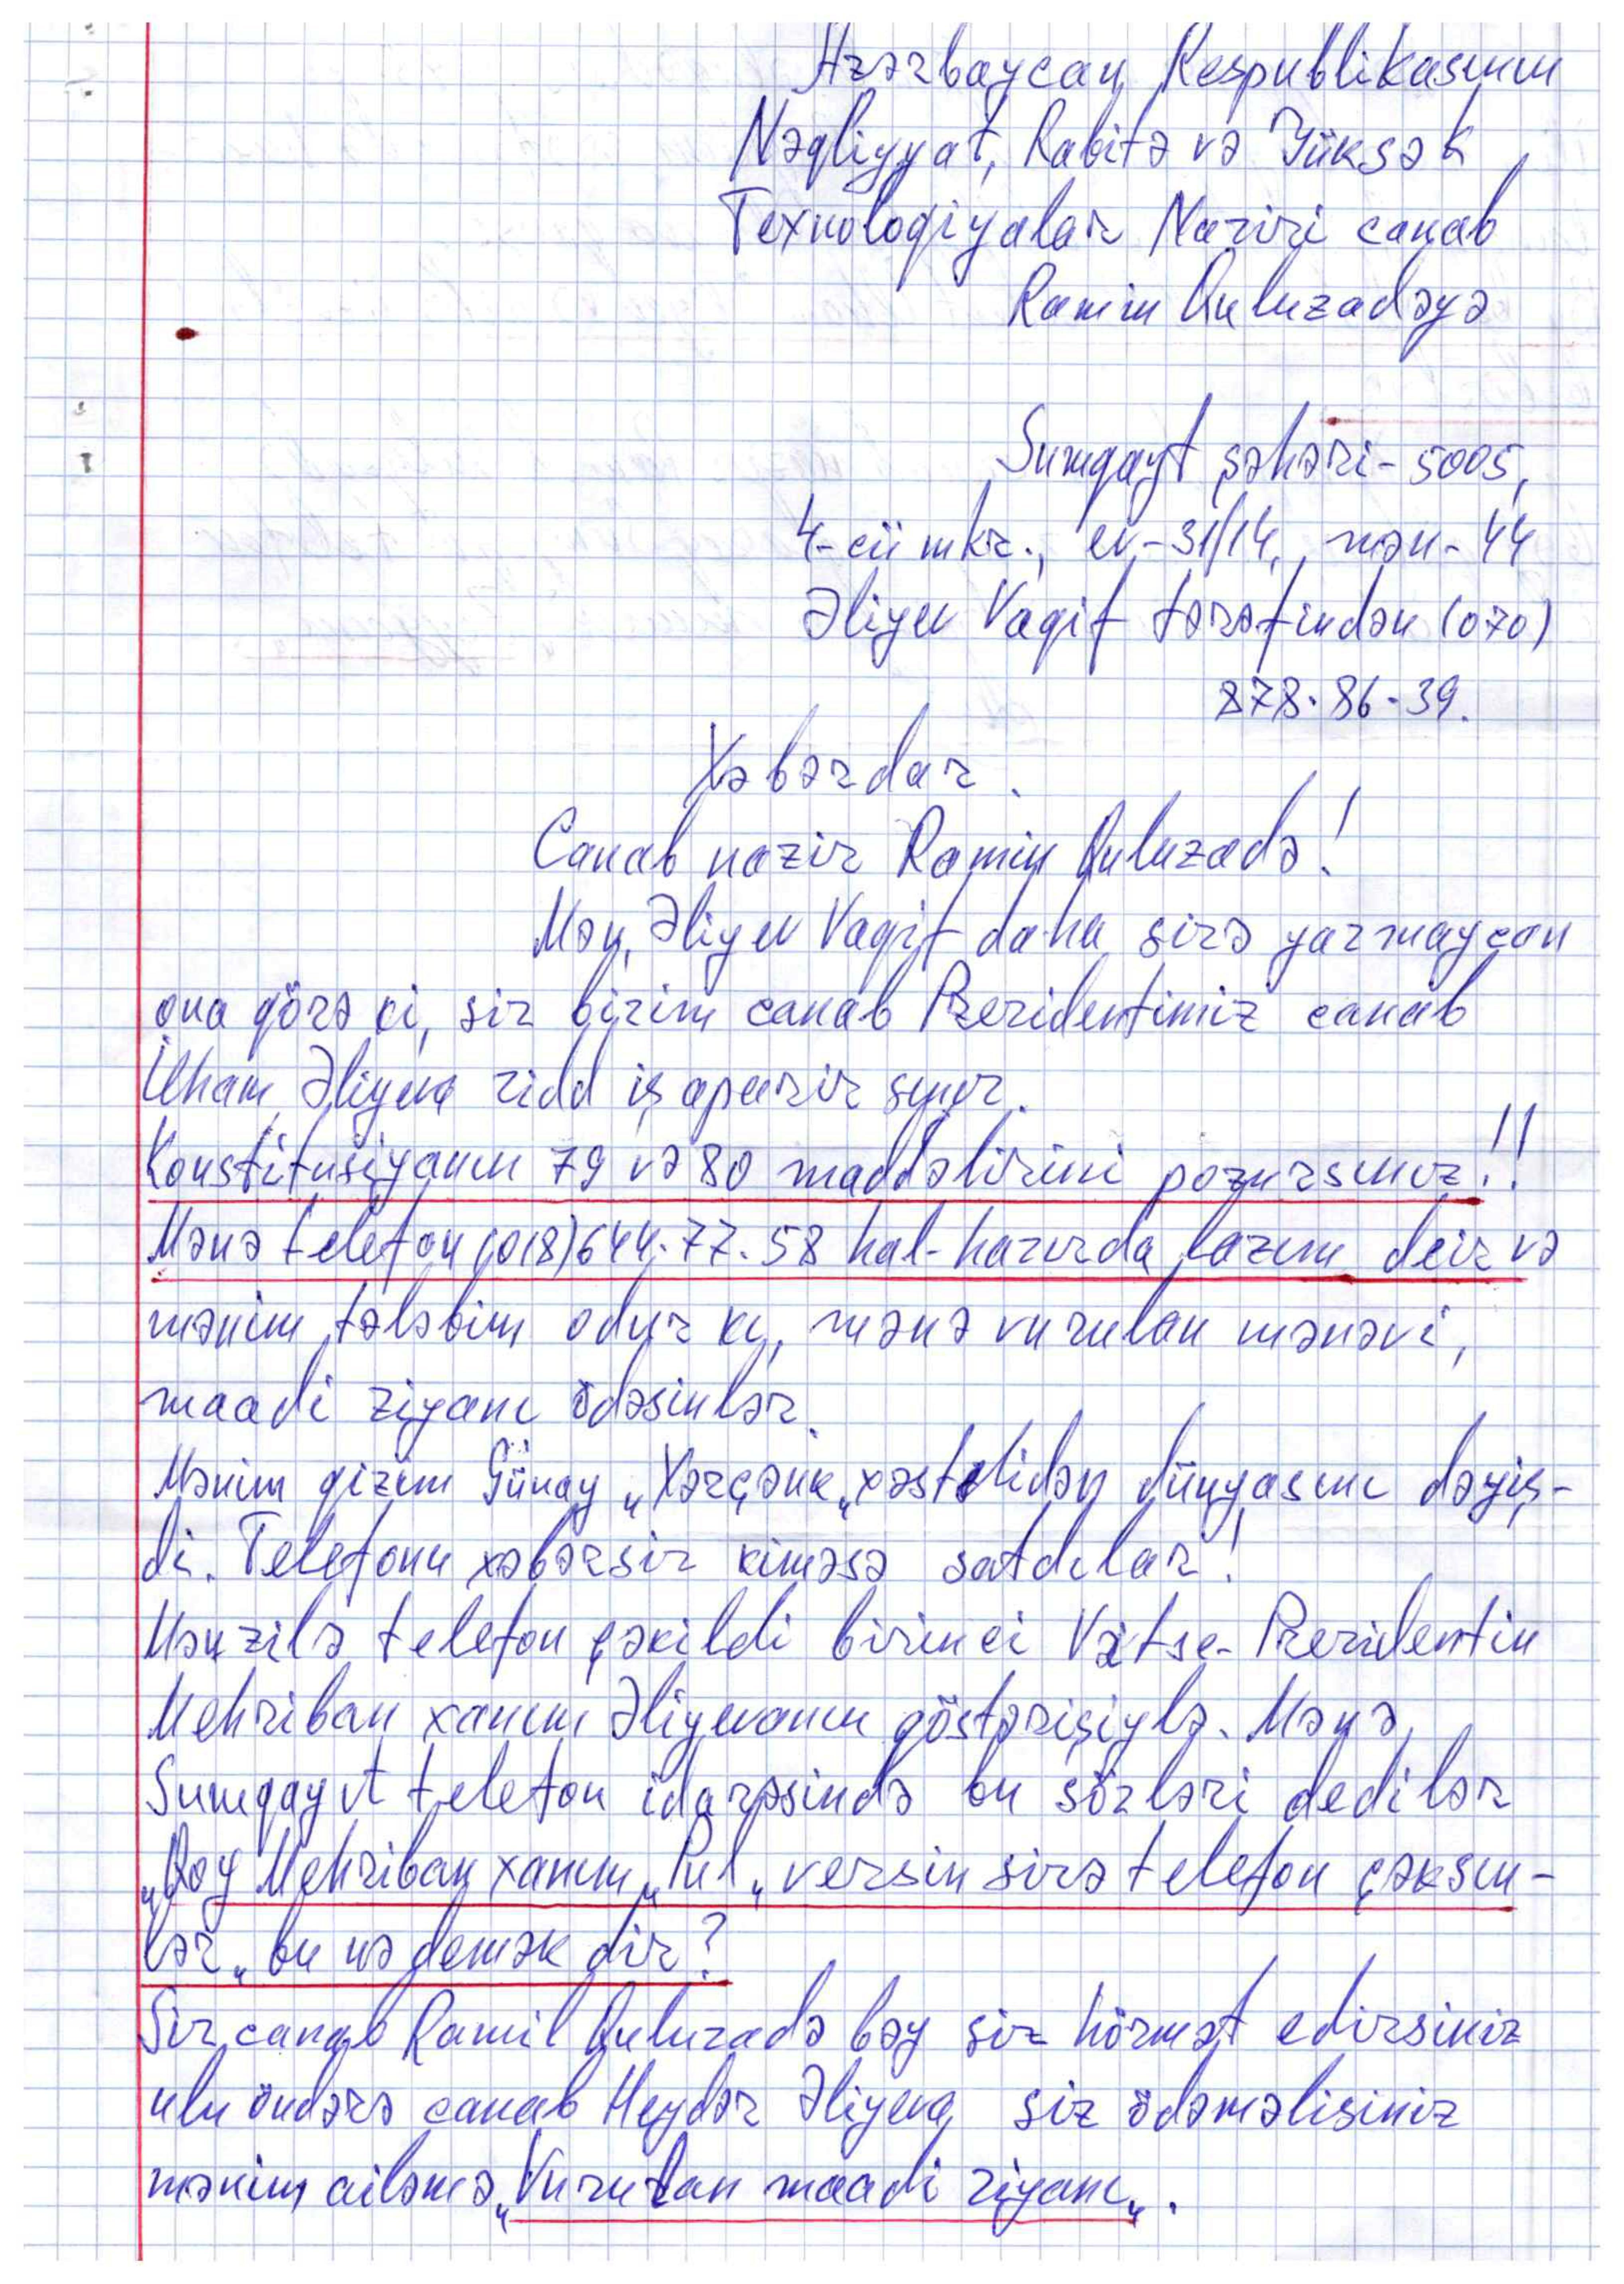 Azərbaycan Respublikasının
Nəqliyyat, Rabitə və Yüksək
Texnologiyalar Naziri cənab
Ramin Quluzadəyə
Sumqayt şəhəri-5005,
4-cü mkr., ev-31/14, mən-44
Əliyev Vaqif tərəfindən (070)
878-86-39.
Xəbərdar.
Cənab nazir Ramin Quluzadə!
Mən, Əliyev Vaqif daha sizə yazmaycan
ona görə ki, siz bizim cənab Prezidentimiz cənab
İlham Əliyevə zidd iş aparır sınız.
Konstitusiyanın 79 və 80 maddəlirini pozursınız!!
Mənə telefon (018)644-77-58 hal-hazırda lazım deir və
mənim tələbim odur ki, mənə vurulan mənəvi,
maadi ziyanı ödəsinlər.
Mənim qizım Günay „Xərçənk„ xəstəlidən dünyasını dəyiş-
di. Telefonu xəbərsiz kiməsə satdılar!
Mənzilə telefon çəkildi birinci Vitse-Prezidentin
Mehriban xanım Əliyevanın göstərişiylə. Mənə
Sumqayıt telefon idarəsində bu sözləri dedilər
„Qoy Mehriban xanım „Pul„ versin sizə telefon çəksin-
lər„ bu nə demək dir?
Siz cənab Ramil Quluzadə bəy siz hörmət edirsiniz
ulu öndərə cənab Heydər Əliyevə siz ödəməlisiniz
mənim ailəmə „Vurulan maadi ziyanı„.